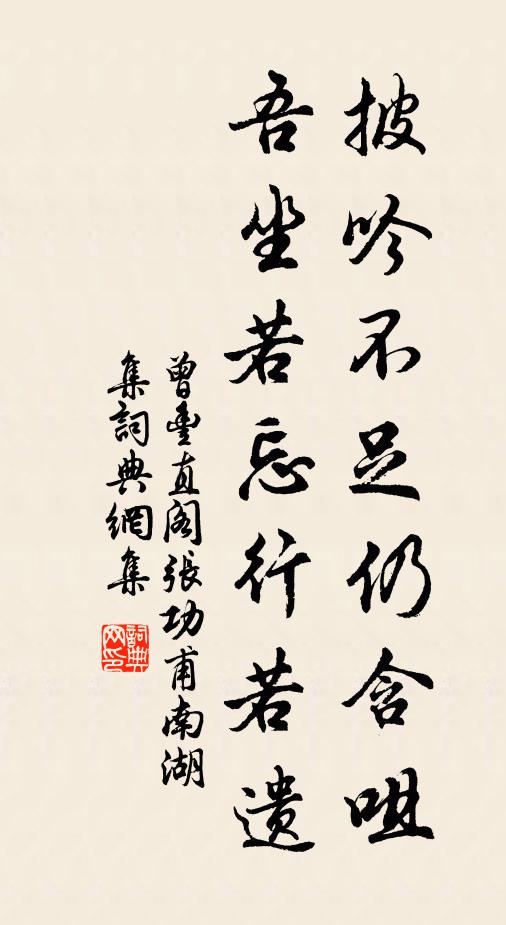 披吟不足仍含咀
吾坐若忘行若遗
曾豐直阁張功甫南湖
集詞典網集
詞典
网印